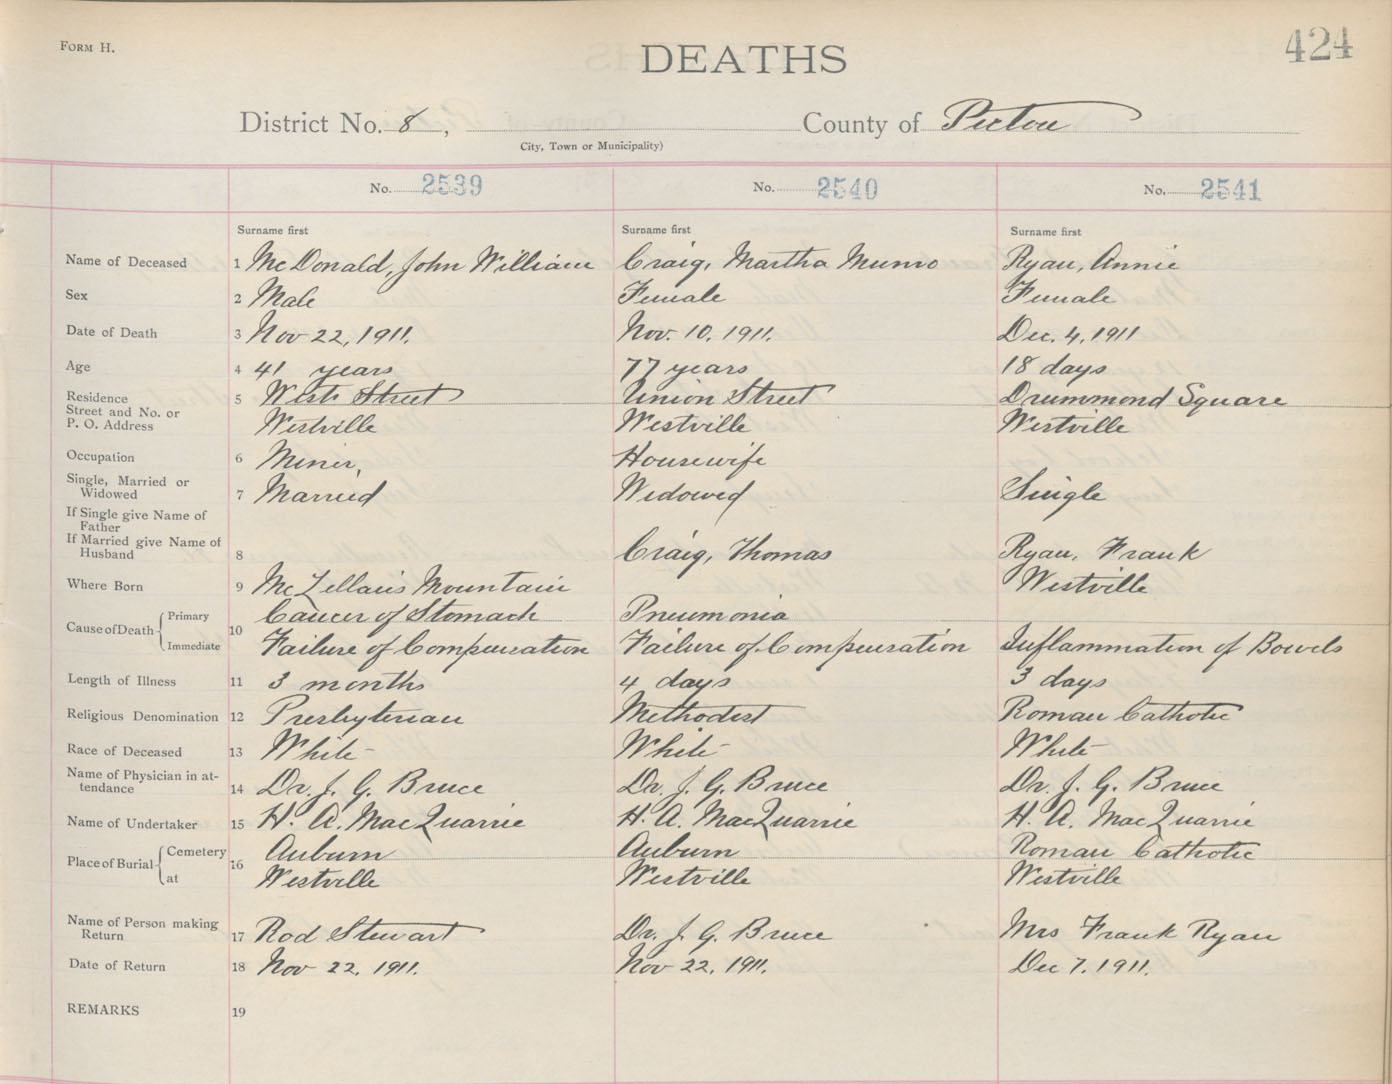 FORM H.
DEATHS
424
District No. 8, County of Pictou
City, Town or Municipality)
No. 2539 No. 2540 No. 2541
Surname first Surname first Surname first
Name of Deceased 1 McDonald, John William Craig, Martha Munro Ryan, Annie
Sex 2 Male Female Female
Date of Death 3 Nov 22, 1911. Nov. 10, 1911. Dec. 4, 1911
Age 4 41 years 77 years 18 days
Residence 5 West Street Union Street Drummond Square
Street and No. or
P. O. Address Westville Westville Westville
Occupation 6 Miner, Housewife
Single, Married or
Widowed 7 Married Widowed Single
If Single give Name of
Father
If Married give Name of
Husband 8 Craig, Thomas Ryan, Frank
Where Born 9 McLellan's Mountain Westville
Cause of Death Primary 10 Cancer of Stomach Pneumonia
Immediate Failure of Compensation Failure of Compensation Inflammation of Bowels
Length of Illness 11 3 months 4 days 3 days
Religious Denomination 12 Presbyterian Methodist Roman Catholic
Race of Deceased 13 White White White
Name of Physician in at-
tendance 14 Dr. J. G. Bruce Dr. J. G. Bruce Dr. J. G. Bruce
Name of Undertaker 15 H. A. MacQuarrie H. A. MacQuarrie H. A. MacQuarrie
Place of Burial Cemetery 16 Auburn Auburn Roman Catholic
at Westville Westville Westville
Name of Person making
Return 17 Rod Stewart Dr. J. G. Bruce Mrs Frank Ryan
Date of Return 18 Nov 22, 1911. Nov 22, 1911. Dec 7, 1911.
REMARKS 19